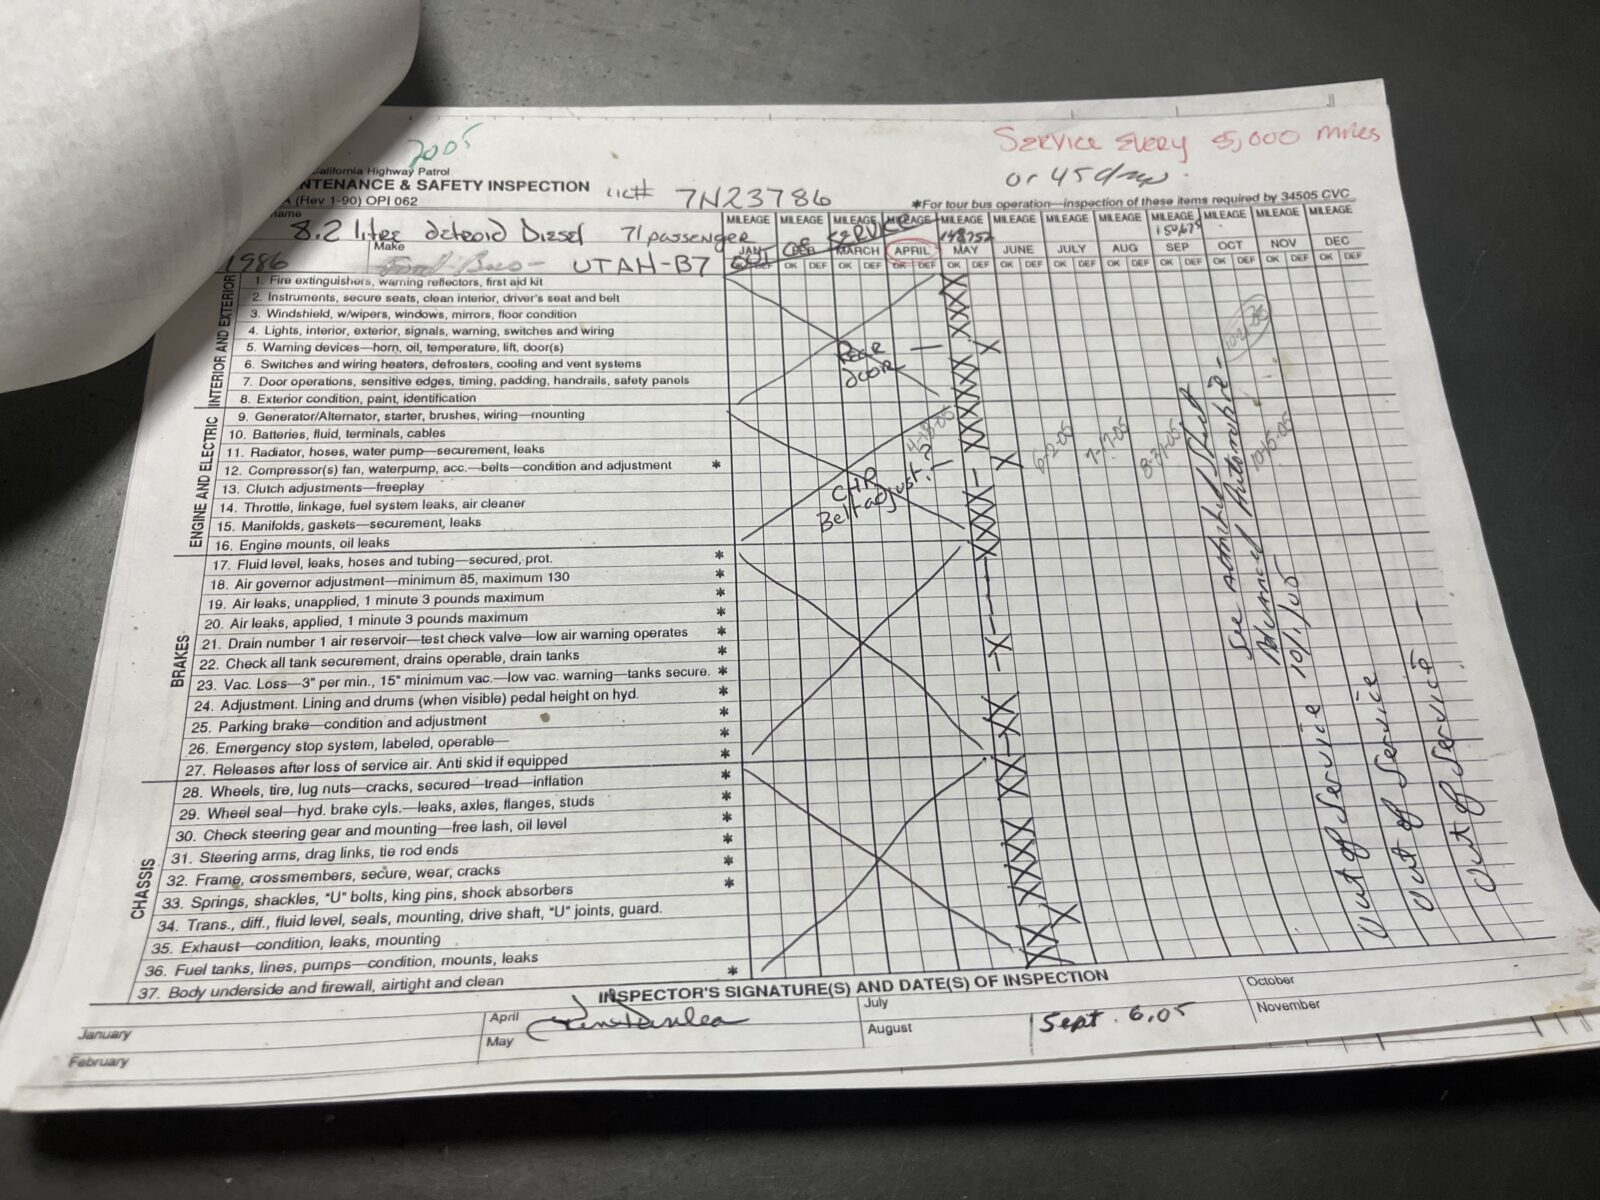 2005
Service Every 5,000 miles
or 45 days
California Highway Patrol
NTENANCE & SAFETY INSPECTION
(Rev 1-90) OPI 062
LIC# 7N23786
*For tour bus operation—inspection of these items required by 34505 CVC
name
8.2 litre detroid Diesel 71 passenger
MILEAGE MILEAGE MILEAGE MILEAGE MILEAGE MILEAGE MILEAGE MILEAGE MILEAGE MILEAGE MILEAGE MILEAGE
148752
150,675
OUT OF SERVICE
1986
Make
Ford Bus - UTAH-B7
JAN FEB MARCH APRIL MAY JUNE JULY AUG SEP OCT NOV DEC
OK DEF OK DEF OK DEF OK DEF OK DEF OK DEF OK DEF OK DEF OK DEF OK DEF OK DEF OK DEF
INTERIOR AND EXTERIOR
1. Fire extinguishers, warning reflectors, first aid kit
2. Instruments, secure seats, clean interior, driver's seat and belt
3. Windshield, w/wipers, windows, mirrors, floor condition
4. Lights, interior, exterior, signals, warning, switches and wiring
5. Warning devices—horn, oil, temperature, lift, door(s)
6. Switches and wiring heaters, defrosters, cooling and vent systems
7. Door operations, sensitive edges, timing, padding, handrails, safety panels
8. Exterior condition, paint, identification
Rear door —
ENGINE AND ELECTRIC
9. Generator/Alternator, starter, brushes, wiring—mounting
10. Batteries, fluid, terminals, cables
11. Radiator, hoses, water pump—securement, leaks
12. Compressor(s) fan, waterpump, acc.—belts—condition and adjustment *
13. Clutch adjustments—freeplay
14. Throttle, linkage, fuel system leaks, air cleaner
15. Manifolds, gaskets—securement, leaks
16. Engine mounts, oil leaks
Belt adjust.
4-18-05
6-2-05
8-31-05
10-15-05
See attached Sheet
10/1/05
BRAKES
17. Fluid level, leaks, hoses and tubing—secured, prot. *
18. Air governor adjustment—minimum 85, maximum 130 *
19. Air leaks, unapplied, 1 minute 3 pounds maximum *
20. Air leaks, applied, 1 minute 3 pounds maximum *
21. Drain number 1 air reservoir—test check valve—low air warning operates *
22. Check all tank securement, drains operable, drain tanks *
23. Vac. Loss—3" per min., 15" minimum vac.—low vac. warning—tanks secure. *
24. Adjustment. Lining and drums (when visible) pedal height on hyd. *
25. Parking brake—condition and adjustment *
26. Emergency stop system, labeled, operable— *
27. Releases after loss of service air. Anti skid if equipped *
CHASSIS
28. Wheels, tire, lug nuts—cracks, secured—tread—inflation *
29. Wheel seal—hyd. brake cyls.—leaks, axles, flanges, studs *
30. Check steering gear and mounting—free lash, oil level *
31. Steering arms, drag links, tie rod ends *
32. Frame, crossmembers, secure, wear, cracks *
33. Springs, shackles, "U" bolts, king pins, shock absorbers *
34. Trans., diff., fluid level, seals, mounting, drive shaft, "U" joints, guard.
35. Exhaust—condition, leaks, mounting
36. Fuel tanks, lines, pumps—condition, mounts, leaks
37. Body underside and firewall, airtight and clean *
Out of Service
Out of Service
Out of Service
INSPECTOR'S SIGNATURE(S) AND DATE(S) OF INSPECTION
January
February
April
May
July
August
Sept. 6, 05
October
November